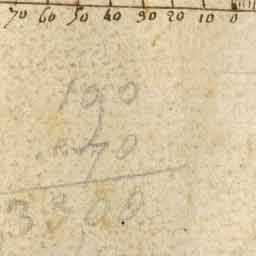 70 60 50 40 30 20 10 0
100
70
3300